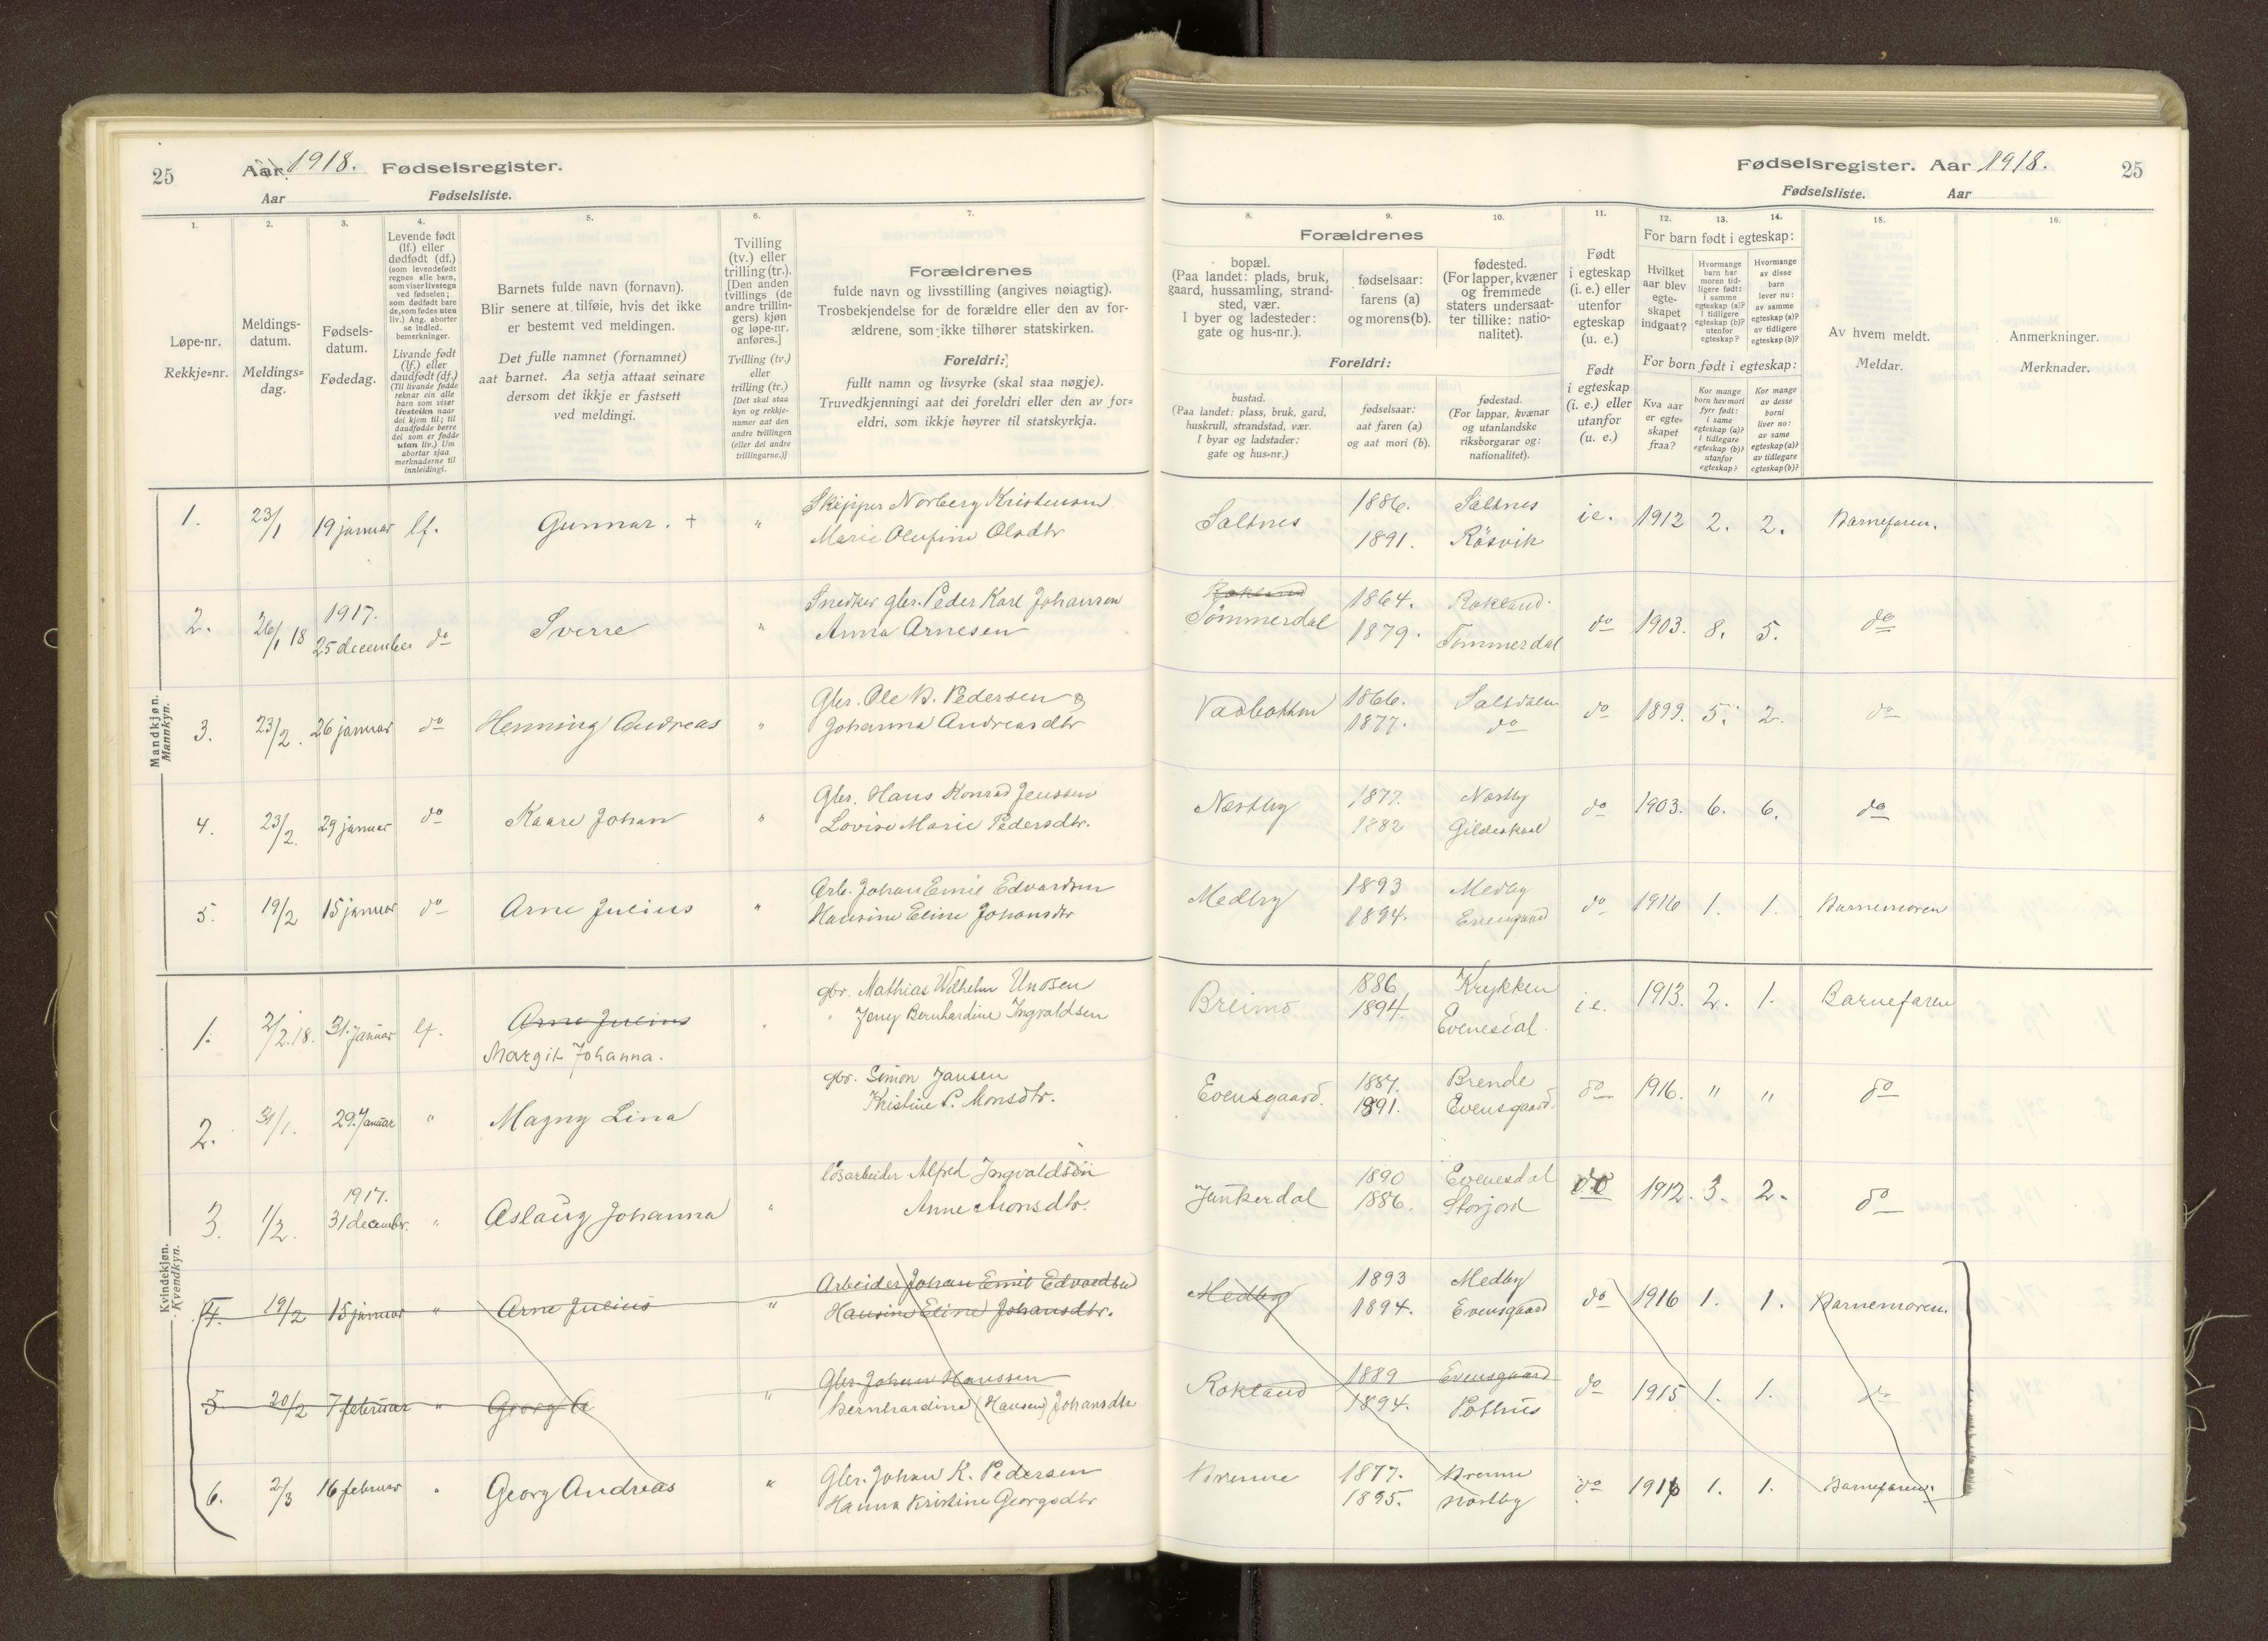 25 Aar 1918. Fødselsregister.
Aar Fødselsliste.
1. 2. 3. 4. 5. 6. 7.
Løpe-nr.
Rekkje=nr.
Meldings-
datum.
Meldings=
dag.
Fødsels-
datum.
Fødedag.
Levende født
(lf.) eller
dødfødt (df.)
(som levendefødt
regnes alle barn,
som viser livstegn
ved fødselen;
som dødfødt bare
de, som fødes uten
liv.) Ang. aborter
se indled.
bemerkninger.
Livande født
(lf.) eller
daudfødt (df.)
(Til livande fødde
reknar ein alle
barn som viser
livsteikn naar
dei kjem til; til
daudfødde berre
dei som er fødde
utan liv.) Um
abortar sjaa
merknaderne til
innleidingi.
Barnets fulde navn (fornavn).
Blir senere at tilføie, hvis det ikke
er bestemt ved meldingen.
Det fulle namnet (fornamnet)
aat barnet. Aa setja attaat seinare
dersom det ikkje er fastsett
ved meldingi.
Tvilling
(tv.) eller
trilling (tr.).
[Den anden
tvillings (de
andre trillin-
gers) kjøn
og løpe-nr.
anføres.]
Tvilling (tv.)
eller
trilling (tr.)
[Det skal staa
kyn og rekkje-
numer aat den
andre tvillingen
(eller dei andre
trillingarne.)]
Forældrenes
fulde navn og livsstilling (angives nøiagtig).
Trosbekjendelse for de forældre eller den av for-
ældrene, som ikke tilhører statskirken.
Foreldri:
fullt namn og livsyrke (skal staa nøgje).
Truvedkjenningi aat dei foreldri eller den av for=
eldri, som ikkje høyrer til statskyrkja.
Mandkjøn.
Mannkyn.
1. 23/1 19 januar lf. Gunnar. + " Skipper Norberg Kristensen
Marie Olufine Olsdtr
2. 26/1 18 1917.
25 december do Sverre " Snedker gbr. Peder Karl Johansen
Anna Arnesen
3. 23/2. 26 januar do Henning Andreas " Gbr. Ole B. Pedersen &
Johanna Andreasdtr
4. 23/2. 29 januar do Kaare Johan " Gbr. Hans Konrad Jenssen
Lovise Marie Pedersdtr.
5. 19/2 15 januar do Arne Julius " Arb. Johan Emil Edvardsen
Hansine Eline Johansdtr
Kvindekjøn.
Kvendkyn.
1. 2/2.18. 31. Januar lf. Arne Julius
Margit Johanna. " gbr. Mathias Wilhelm Unosen
" Jenny Bernhardine Ingvaldsen
2. 31/1. 29. Januar " Magny Lina gbr. Simon Jansen
Kristine P. Monsdtr.
3. 1/2. 1917.
31 decembr. " Aslaug Johanna " løsarbeider Alfred Ingvaldsen
Anne Monsdtr.
4. 19/2 15 januar " Arne Julius " Arbeider Johan Emil Edvardsen
Hansine Eline Johansdtr.
5. 20/2 7 februar " Georg " Gbr. Johan Hanssen
Bernhardine (Hansen) Johansdtr
6. 2/3 16 februar " Georg Andreas " Gbr. Johan K. Pedersen
Hanna Kristine Georgsdtr
Fødselsregister. Aar 1918. 25
Fødselsliste. Aar
8. 9. 10. 11. 12. 13. 14. 15. 16.
Forældrenes
bopæl.
(Paa landet: plads, bruk,
gaard, hussamling, strand-
sted, vær.
I byer og ladesteder:
gate og hus-nr.).
fødselsaar:
farens (a)
og morens (b).
fødested.
(For lapper, kvæner
og fremmede
staters undersaat-
ter tillike: natio-
nalitet).
Foreldri:
bustad.
(Paa landet: plass, bruk, gard,
huskrull, strandstad, vær.
I byar og ladstader:
gate og hus=nr.)
fødselsaar:
aat faren (a)
og aat mori (b).
fødestad.
(For lappar, kvænar
og utanlandske
riksborgarar og:
nationalitet).
Født
i egteskap
(i. e.) eller
utenfor
egteskap
(u. e.)
Født
i egteskap
(i. e.) eller
utanfor
(u. e.)
For barn født i egteskap:
Hvilket
aar blev
egte-
skapet
indgaat?
Hvormange
barn har
moren tid-
ligere født:
i samme
egteskap (a)?
i tidligere
egteskap (b)?
utenfor
egteskap?
Hvormange
av disse
barn
lever nu:
av samme
egteskap (a)?
av tidligere
egteskap (b)?
For born født i egteskap:
Kva aar
er egte=
skapet
fraa?
Kor mange
born hev mori
fyrr født:
i same
egteskap (a)?
i tidlegare
egteskap (b)?
utanfor
egteskap?
Kor mange
av desse
borni
liver no:
av same
egteskap (a)?
av tidlegare
egteskap (b)?
Av hvem meldt.
Meldar.
Anmerkninger.
Merknader.
Saltnes 1886. Saltnes i.e. 1912 2. 2. Barnefaren.
1891. Røsvik
Rokland
Tømmerdal 1864. Rokland. do 1903. 8. 5. do
1879. Tømmerdal
Vasbotten 1866. Saltdalen do 1899. 5. 2. do
1877. do
Næstby 1877. Næstby do 1903. 6. 6. do
1882 Gildeskaal
Medby 1893 Medby do 1916 1. 1. Barnemoren
1894. Evensgaard
Breimo 1886 Krykken i.e. 1913. 2. 1. Barnefaren
1894. Evenesdal
Evensgaard. 1887. Brende do 1916. " " do
1891. Evensgaard.
Junkerdal 1890 Evenesdal do 1912. 3. 2. do
1886. Storjord
Medby 1893 Medby do 1916 1. 1. Barnemoren
1894. Evensgaard
Rokland 1889 Evensgaard do 1915 1. 1. do
1894. Pothus
Brenne 1877. Brenne do 1916 1. 1. Barnefaren.
1895. Næstby